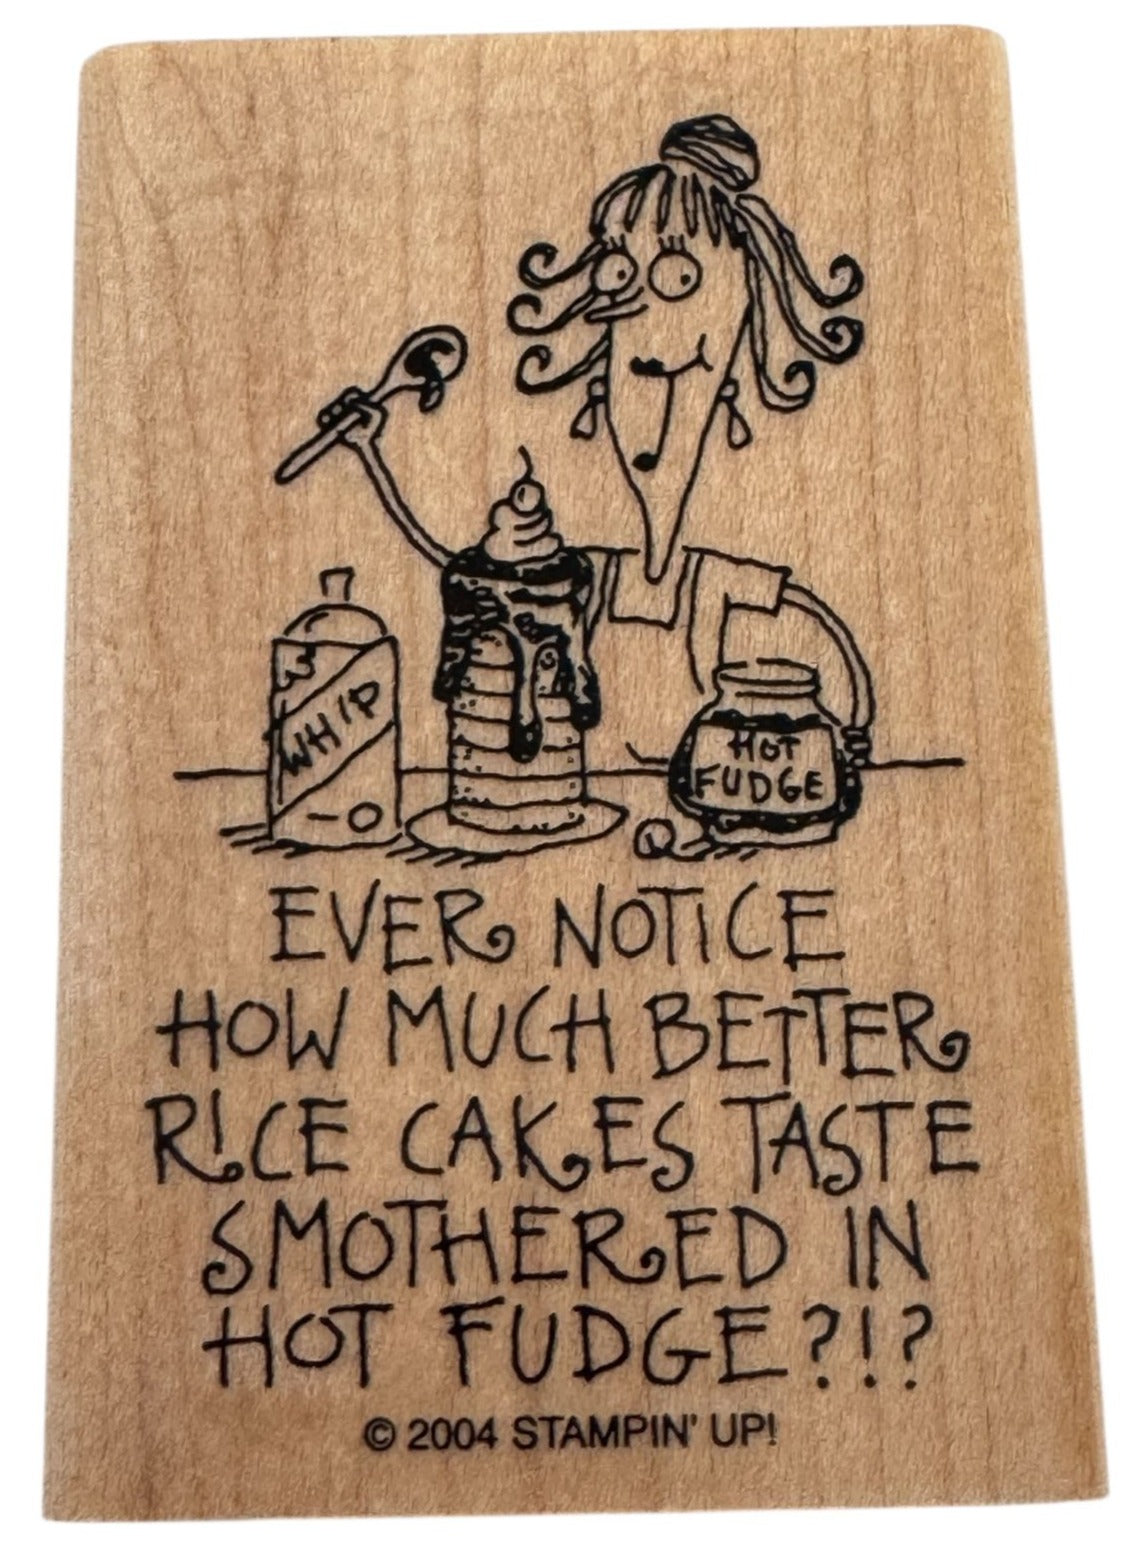 WHIP
HOT
FUDGE
EVER NOTICE
HOW MUCH BETTER
RICE CAKES TASTE
SMOTHERED IN
HOT FUDGE?!?
© 2004 STAMPIN' UP!